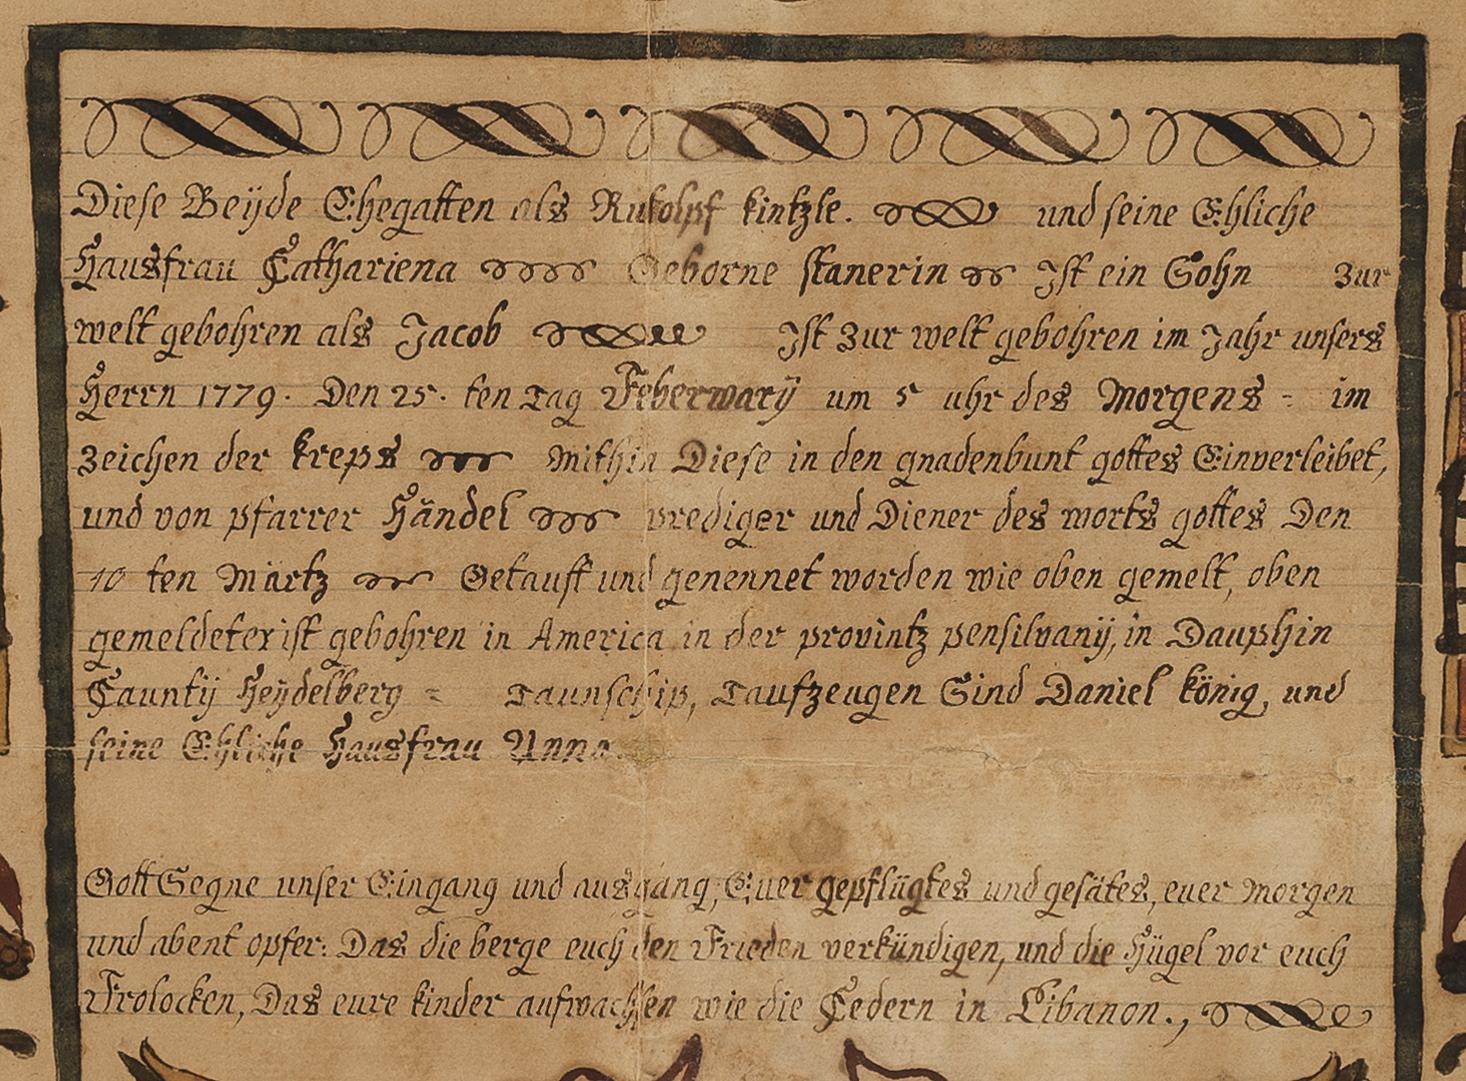 Diese Beyde Ehegatten als Rudolpf kintzle. und seine Ehliche
Hausfrau Cathariena Geborne stanerin Ist ein Sohn zur
welt gebohren als Jacob Ist zur welt gebohren im Jahr unsers
Herrn 1779. Den 25. ten Tag Feberwarÿ um 5 uhr des Morgens = im
zeichen der kreps Mithin Diese in den gnadenbunt gottes Einverleibet,
und von pfarrer Händel prediger und Diener des worts gottes Den
10 ten Märtz Getauft und genennet worden wie oben gemelt, oben
gemeldeter ist gebohren in America in der provintz pensilvanÿ, in Dauphin
Cauntÿ Heÿdelberg = Taunschip, Taufzeugen Sind Daniel könig, und
seine Ehliche Hausfrau Anna.
Gott Segne unser Eingang und ausgang, Euer gepflügtes und gesätes, euer morgen
und abent opfer: Das die berge euch den Frieden verkündigen, und die Hügel vor euch
Frolocken, Das eure kinder aufwachsen wie die Cedern in Libanon.,